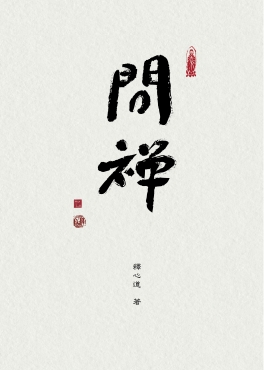 問
禅
釋心道 著